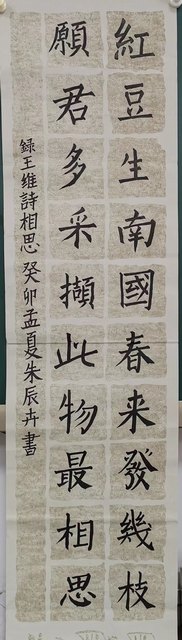 紅豆生南國春来發幾枝
願君多采擷此物最相思
録王维詩相思癸卯孟夏朱辰卉書